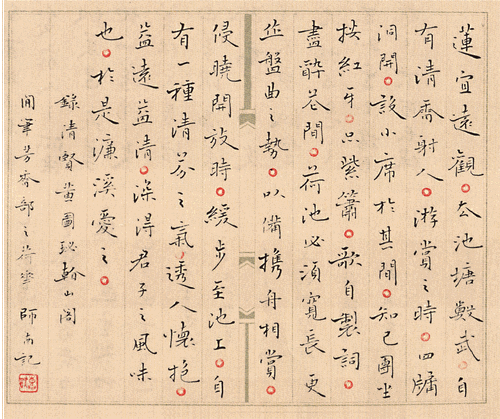 蓮宜遠觀。去池塘數武。自
有清香射人。游賞之時。四牖
洞開。設小席於其間。知己團坐
按紅牙。品紫簫。歌自製詞。
盡醉花間。荷池必須寬長。更
作盤曲之勢。以備攜舟相賞。
侵曉開放時。緩步至池上。自
有一種清芬之氣。透人懷抱。
益遠益清。深得君子之風味
也。於是濂溪愛之。
錄清賢黃圖珌看山閣
閒筆芳香部之荷華 師記